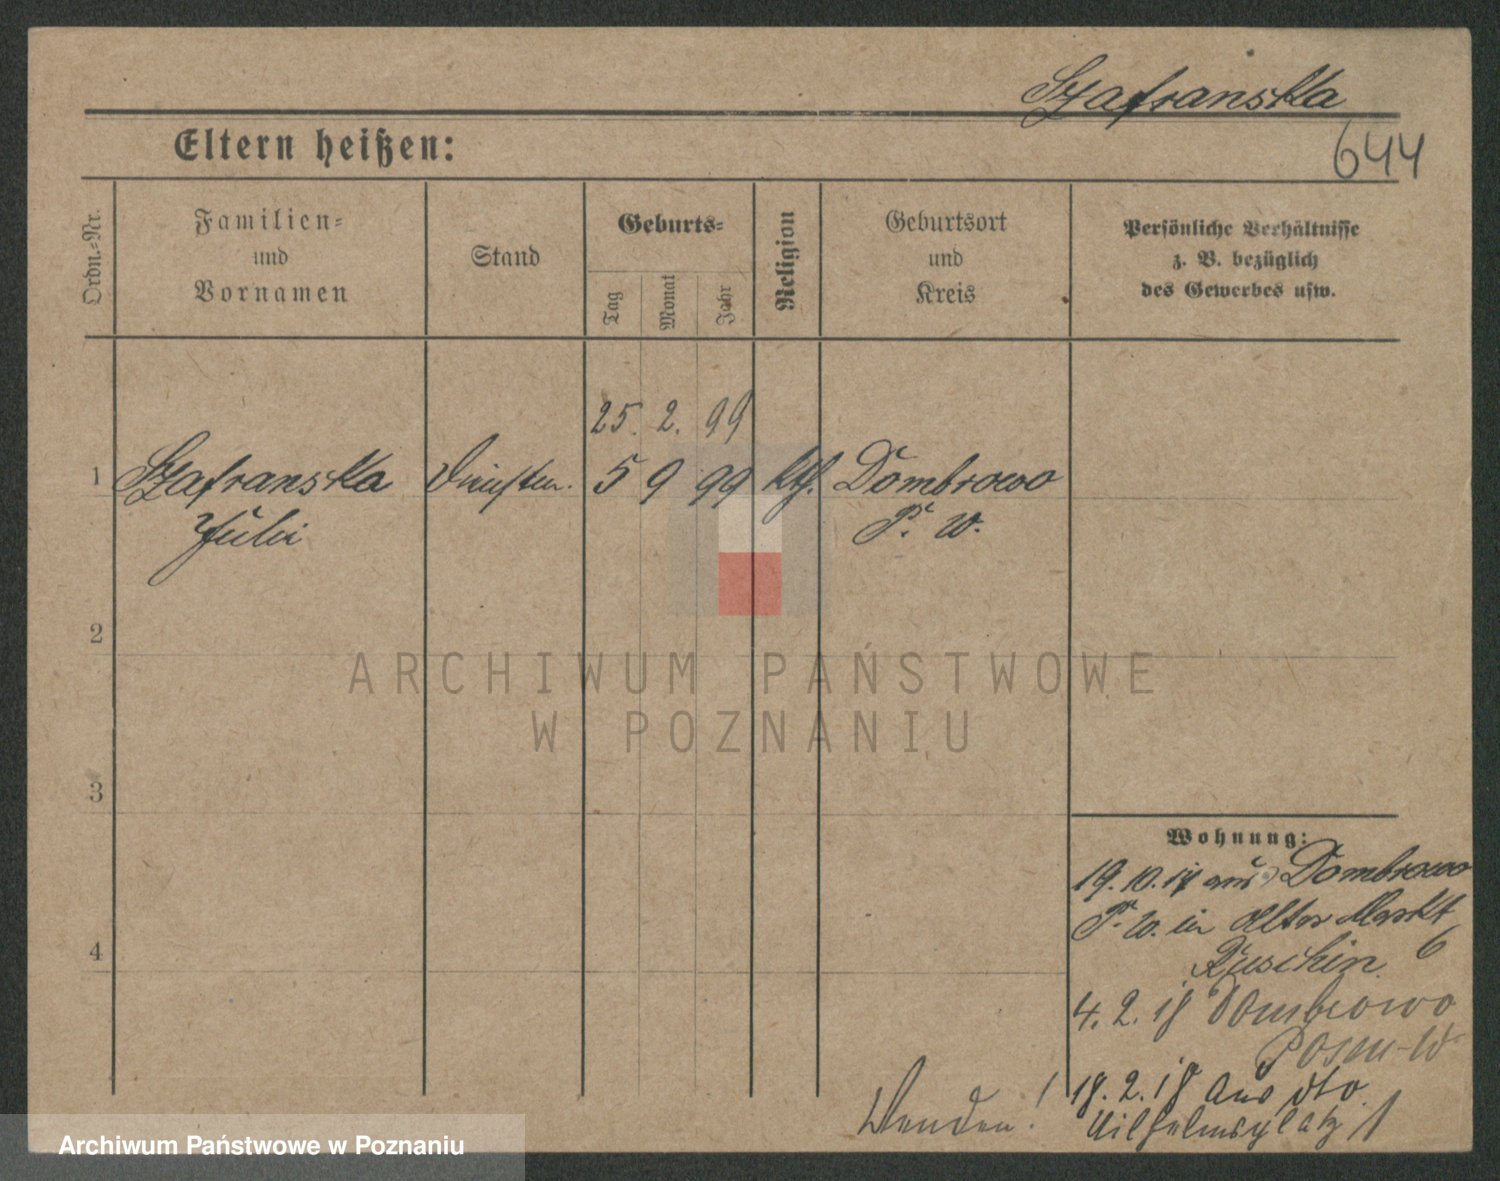 Szafranska
644
Eltern heißen:
Ordn.-Nr.
Familien-
und
Vornamen
Stand
Geburts-
Tag
Monat
Jahr
Religion
Geburtsort
und
Kreis
Persönliche Verhältnisse
z. B. bezüglich
des Gewerbes usw.
25. 2. 99
1 Szafranska 5 9 99 kth. Dombrowo
P. W.
2
ARCHIWUM PAŃSTWOWE
W POZNANIU
3
Wohnung:
19. 10. 17 aus Dombrowo
P. W. in Alter Markt
Ruschin 6
4
4. 2. 18 Dombrowo
Posen-W
18. 2. 18 Aus dto.
Wilhelmsplatz 1
Wenden!
Archiwum Państwowe w Poznaniu